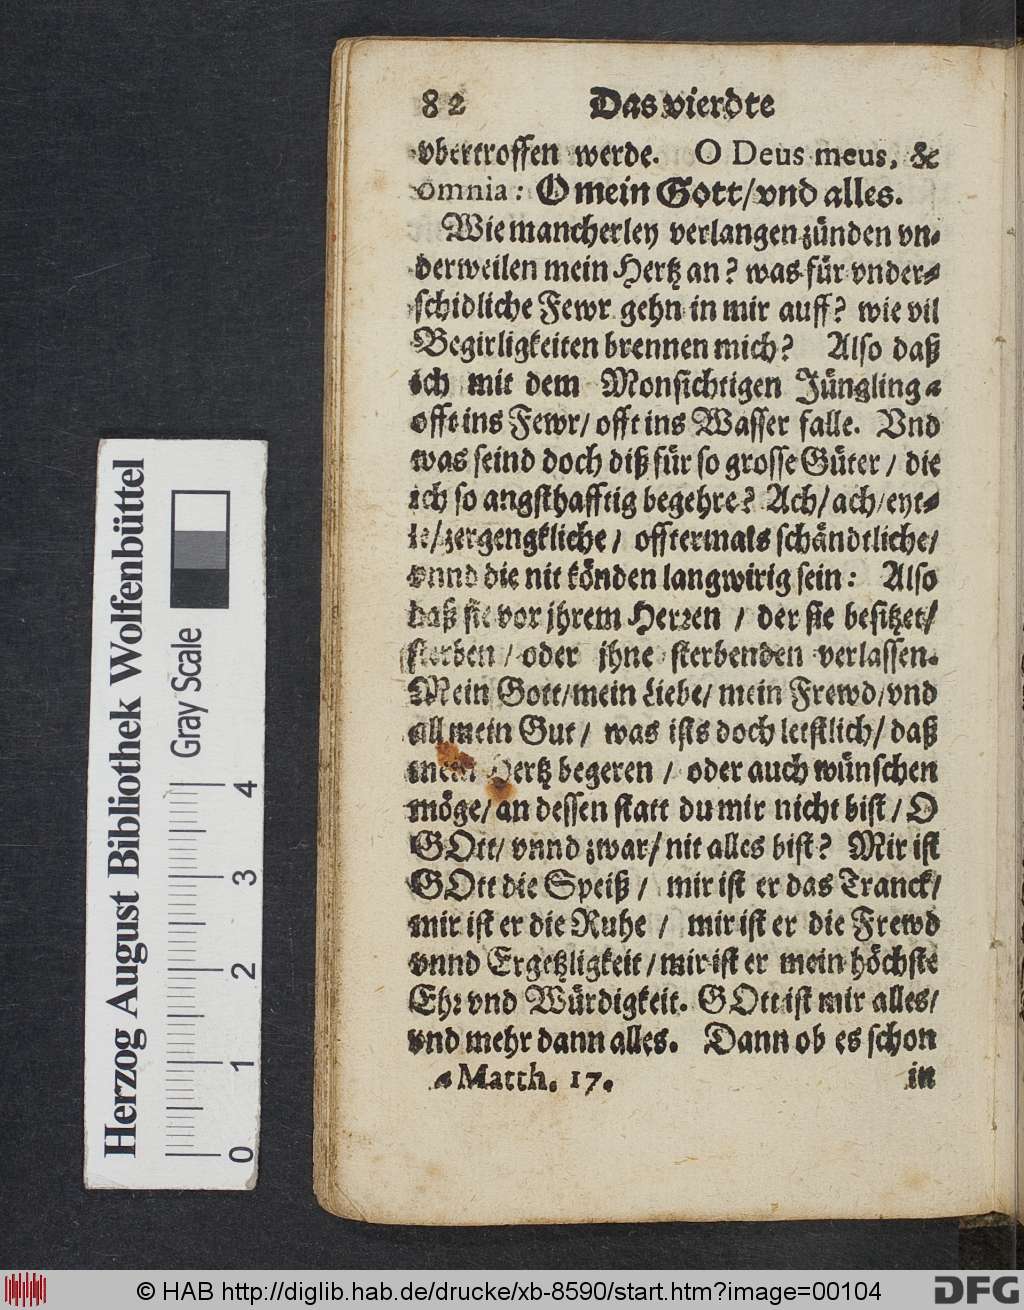 82 Das vierdte
vbertroffen werde. O Deus meus, &
omnia: O mein Gott/ vnd alles.
Wie mancherley verlangen zünden vn-
derweilen mein Hertz an? was für vnder-
schidliche Fewr gehn in mir auff? wie vil
Begirligkeiten brennen mich? Also daß
ich mit dem Monsichtigen Jüngling a
offt ins Fewr/ offt ins Wasser falle. Vnd
was seind doch diß für so grosse Güter / die
ich so angsthafftig begehre? Ach/ ach/ eyt-
le/ zergengkliche / offtermals schändtliche/
vnnd die nit könden langwirig sein: Also
daß sie vor jhrem Herꝛen / der sie besitzet/
sterben / oder jhne sterbenden verlassen.
Mein Gott/ mein Liebe/ mein Frewd/ vnd
all mein Gut / was ists doch letstlich/ daß
mein Hertz begeren / oder auch wünschen
möge/ an dessen statt du mir nicht bist/ O
GOtt/ vnnd zwar/ nit alles bist? Mir ist
GOtt die Speiß / mir ist er das Tranck/
mir ist er die Ruhe / mir ist er die Frewd
vnnd Ergetzligkeit / mir ist er mein höchste
Ehꝛ vnd Würdigkeit. GOtt ist mir alles/
vnd mehr dann alles. Dann ob es schon
a Matth. 17. in
Herzog August Bibliothek Wolfenbüttel
Gray Scale
0 1 2 3 4
© HAB http://diglib.hab.de/drucke/xb-8590/start.htm?image=00104
DFG